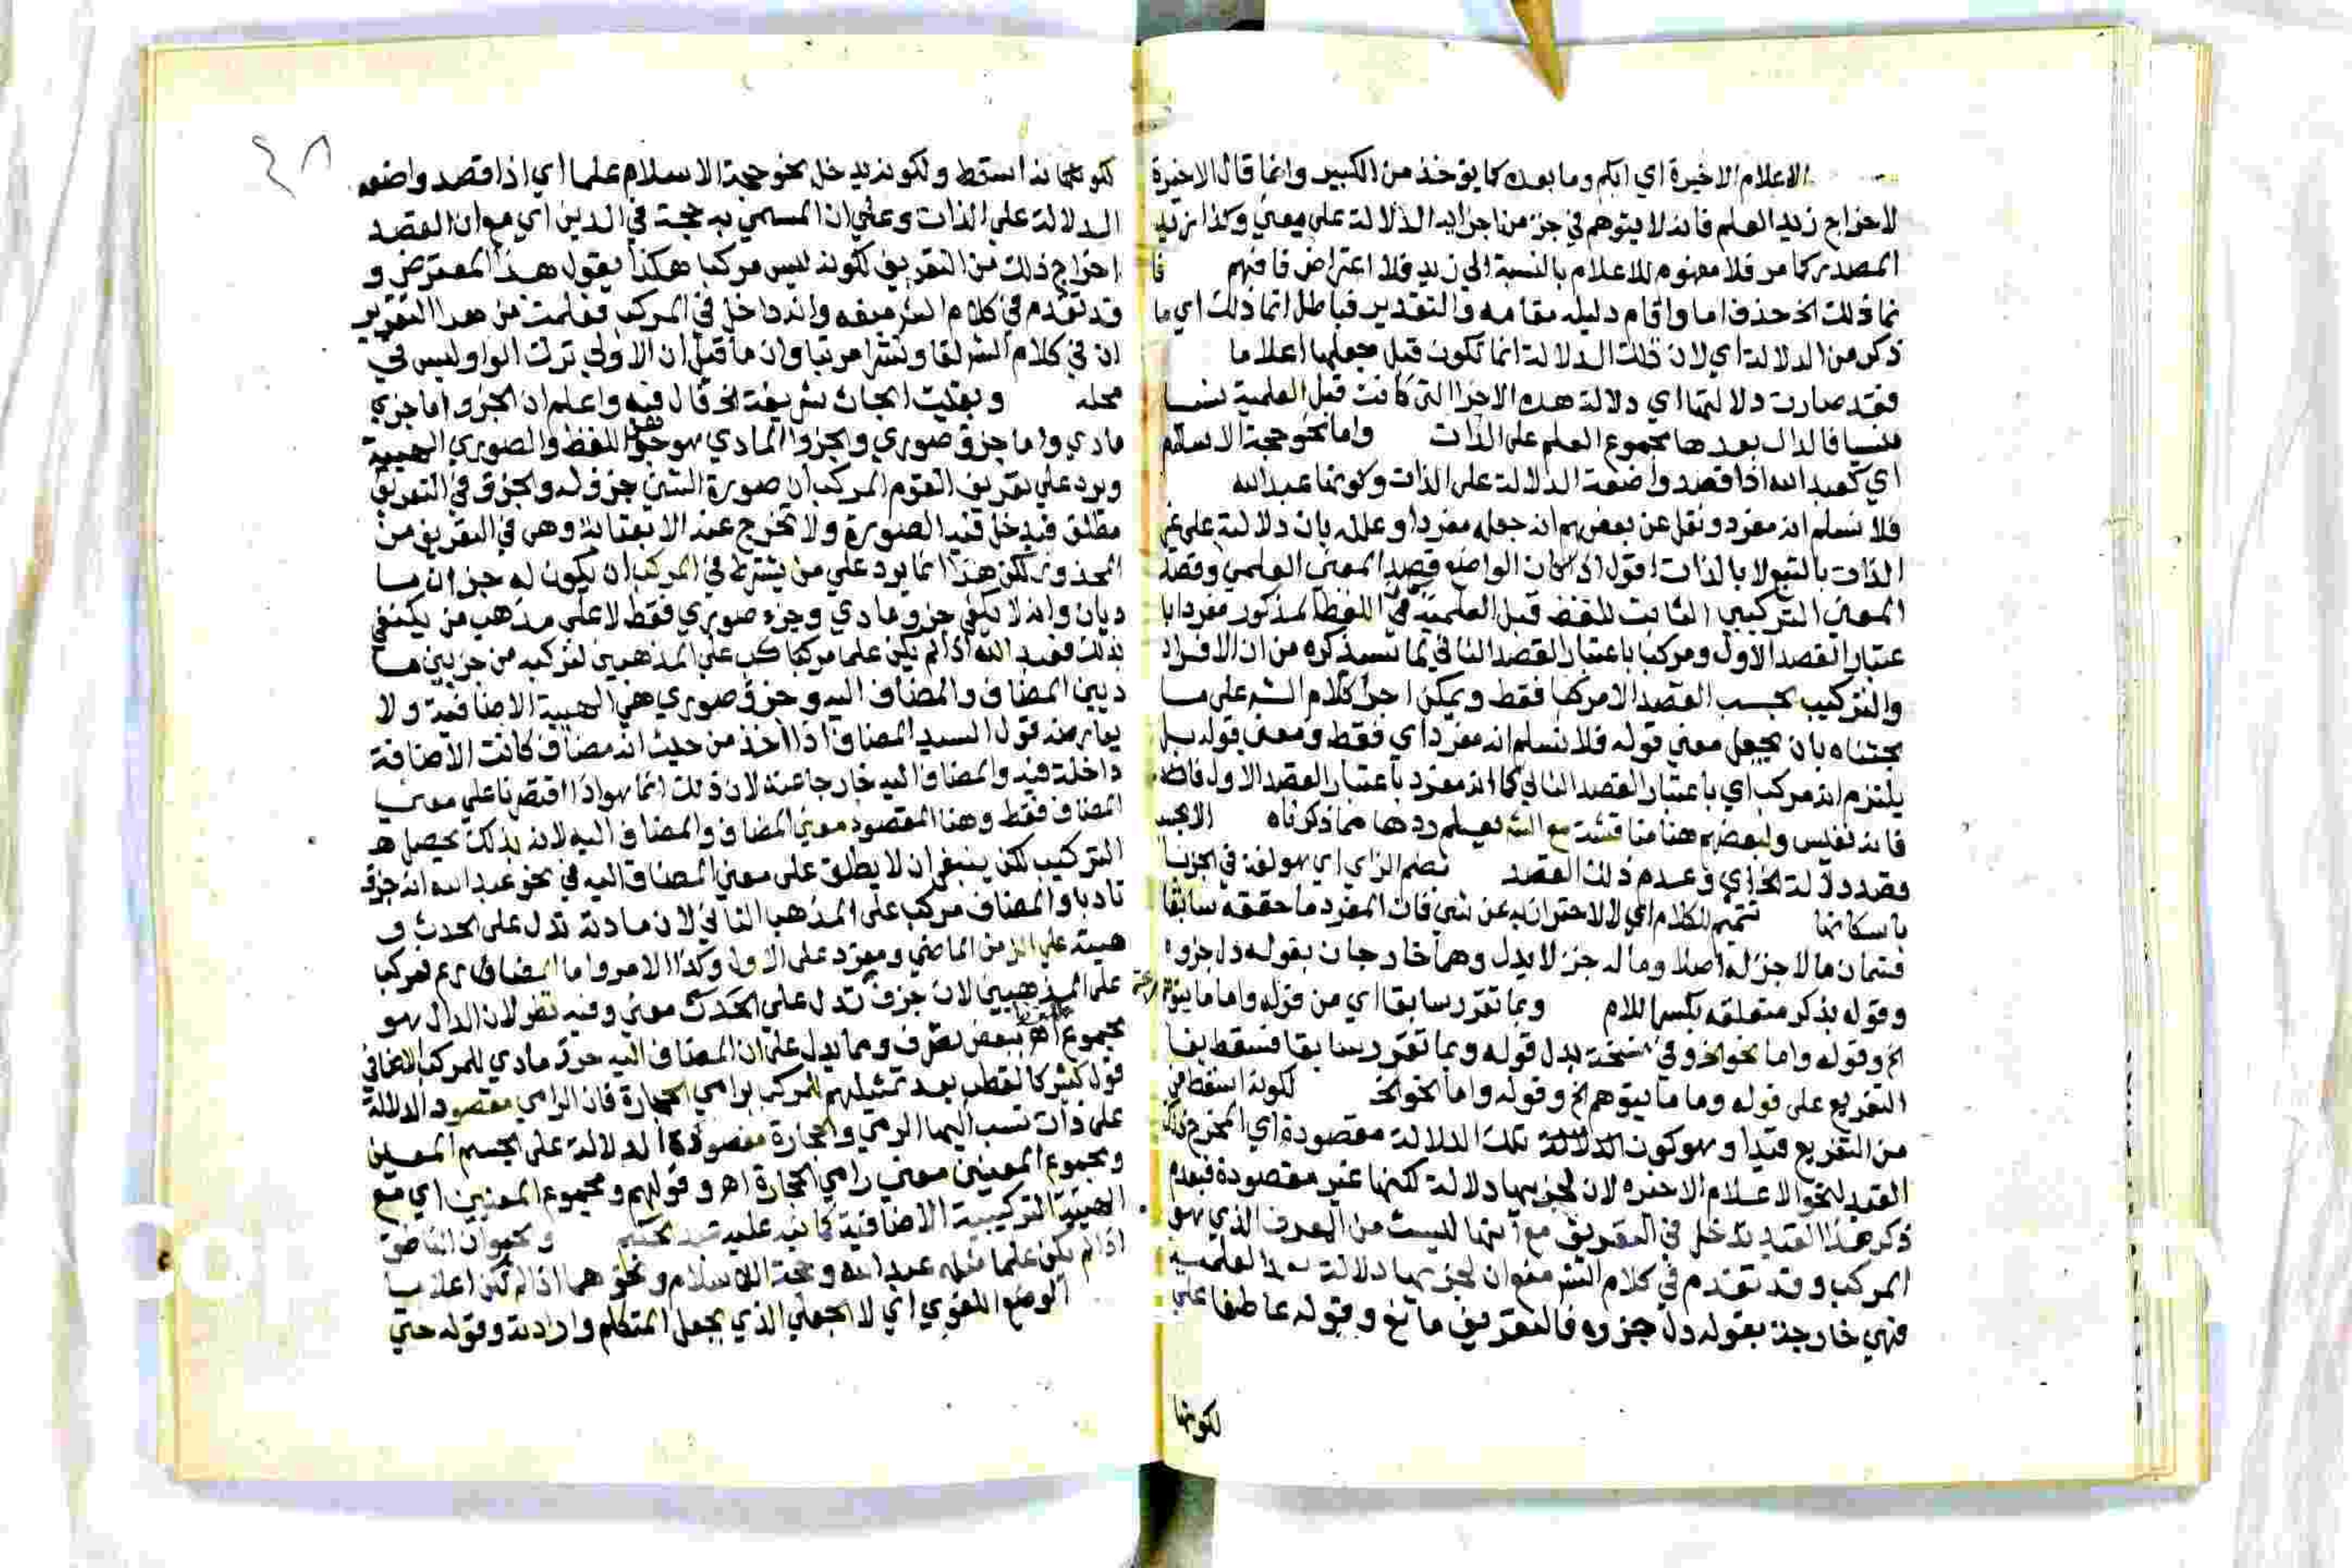 الاعلام الاخيرة اي ابكم وما بعده كما يؤخذ من الكبير وانما قال الاخيرة
لاخراج زيد العلم فانه لا يتوهم في جزء من اجزايه الدلالة على معني وكذا زيد
المصدر كما مر فلا مفهوم للاعلام بالنسبة الي زيد فلا اعتراض فافهم فا
نما ذلك الخ حذف اما واقام دليله مقامه والتقدير فباطل انما ذلك اي ما
ذكر من الدلالة اي لان تلك الدلالة انما تكون قبل جعلها اعلاما
فقد صارت دلالتها اي دلالة هذه الاجزا التي كانت قبل العلمية نسيا
منسيا فالدال بعدها مجموع العلم على الذات واما نحو حجة الاسلام
اي كعبد الله اذا قصد واضعه الدلالة على الذات وكونها عبد الله
فلا نسلم انه مفرد ونقل عن بعضهم انه جعله مفردا وعلله بان دلالته على غير
الذات بالتبع لا بالذات اقول اذا كان الواضع قصد المعني العلمي وقصد
المعني التركيبي الثابت للفظ قبل العلمية في اللفظ المذكور مفردا با
عتبار القصد الاول ومركبا باعتبار القصد الثاني لما سنذكره من ان الافراد
والتركيب بحسب القصد لا مركبا فقط ويمكن اجرا كلام الش على ما
بحثناه بان يجعل معني قوله فلا نسلم انه مفرد اي فقط ومعني قوله بل
يلتزم انه مركب اي باعتبار القصد الثاني كما انه مفرد باعتبار القصد الاول
فانه نفيس ولبعضهم هنا مناقشة مع الش يعلم ردها مما ذكرناه
فقصد دلالة الخ اي وعدم ذلك القصد بضم الزاي اي هو لغة في الجزء
باسكانها تتميم للكلام اي لا للاحتراز به عن شيء فان المفرد ما حققه سابقا
قسمان ما لا جزء له اصلا وما له جزء لا يدل وهما خارجان بقوله دل جزؤه
وقوله بذكر متعلقه بكسر اللام وبما تقرر سابقا اي من قوله واما ما يتوهم
الخ وقوله واما نحو الخ وفي نسخة بدل قوله وبما تقرر سابقا فسقط بفا
التفريع على قوله وما ما يتوهم الخ وقوله واما نحو الخ لكونه اسقط في
من التفريع قيدا وهو كون الدلالة تلك الدلالة مقصودة اي المخرج ذلك
القيد لنحو الاعلام الاخيرة لان لجزيها دلالة لكنها غير مقصودة فبعدم
ذكر هذا القيد تدخل في التعريف مع انها ليست من المعرف الذي هو
المركب وقد تقدم في كلام الش منع ان لجزيها دلالة بعد العلمية
فهي خارجة بقوله دل جزوه فالتعريف مانع وقوله عاطفا على
لكونها
٤٨
لكونها نه اسقط ولكونه يدخل نحو حجة الاسلام علما اي اذا قصد واضعه
الدلالة على الذات وعلي ان المسمي به حجة في الدين اي مع ان القصد
اخراج ذلك من التعريف لكونه ليس مركبا هكذا يقول هذا المعترض و
قد تقدم في كلام الش منعه وانه داخل في المركب فعلمت من هذا التقرير
ان في كلام الش لفا ونشرا مرتبا وان ما قيل ان الاولي ترك الواو ليس في
محله وبقيت ابحاث شريفة الخ قال فيه واعلم ان الجزء اما جزء
مادي واما جزء صوري والجزء المادي هو جزء اللفظ والصوري الهيية
ويرد علي تعريف القوم المركب ان صورة الشيء جزء له والجزء في التعريف
مطلق فيدخل فيه الصورة ولا تخرج عنه الا بعناية وهي في التعريف من
المحذور لكن هذا انما يرد علي من يشترط في المركب ان يكون له جزان ما
ديان وانه لا يكفي جزء مادي وجزء صوري فقط لا على مذهب من يكتفي
بذلك فعبد الله اذا لم يكن علما مركبا كب على المذهبين لتركبه من جزيين ما
ديين المضاف والمضاف اليه وجزء صوري هي الهيية الاضافية ولا
يعارضه قول السيد المضاف اذا اخذ من حيث انه مضاف كانت الاضافة
داخلة فيه والمضاف اليه خارجا عنه لان ذلك انما هو اذا اقتصرنا علي معني
المضاف فقط وهنا المقصود معني المضاف والمضاف اليه لانه بذلك يحصل
التركيب لكن ينبغي ان لا يطلق على معني المضاف اليه في نحو عبد الله انه جزء
والمضاف مركب على المذهب الثاني لان مادته تدل على الحدث و
هييته علي الزمن الماضي ومفرد على الاول وكذا الامر واما المضارع فمركبا
على المذهبين لان جزءه تدل علي الحدث معني وفيه نظر لان الدال هو
مجموع اهـ ببعض تصرف ومما يدل على ان المضاف اليه جزء مادي للمركب الاضافي
قول كثير كالقطب بعد تمثيلهم المركب برامي الحجارة فان الرامي مقصود الدلالة
على ذات نسب اليها الرمي والحجارة مقصودة الدلالة على الجسم المعين
ومجموع المعنيين معني رامي الحجارة اهـ وقولهم ومجموع المعنيين اي مع
الهيية التركيبية الاضافية كما نبه عليه وكحيوان الناطق
اذا لم يكن علما مثله عبد الله وحجة الاسلام ونحوهما اذا لم تكن اعلاما
الوضع اللغوي اي لا الجعلي الذي بجعل المتكلم وارادته وقوله حتي